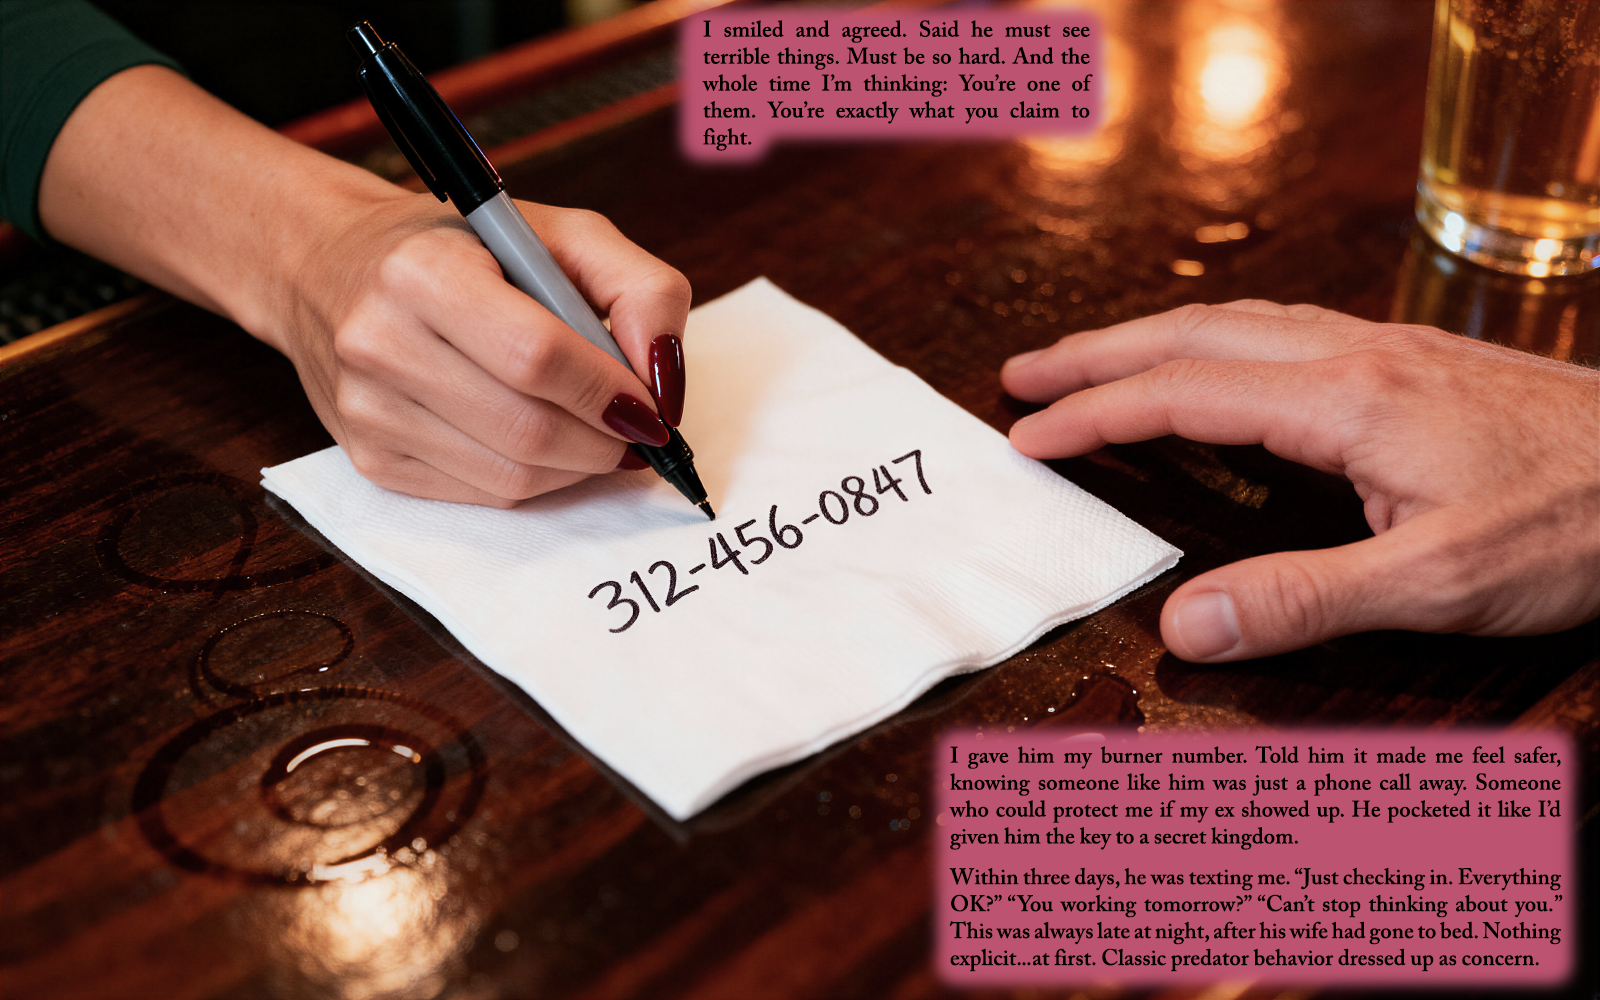 I smiled and agreed. Said he must see
terrible things. Must be so hard. And the
whole time I’m thinking: You’re one of
them. You’re exactly what you claim to
fight.
312-456-0847
I gave him my burner number. Told him it made me feel safer,
knowing someone like him was just a phone call away. Someone
who could protect me if my ex showed up. He pocketed it like I’d
given him the key to a secret kingdom.
Within three days, he was texting me. “Just checking in. Everything
OK?” “You working tomorrow?” “Can’t stop thinking about you.”
This was always late at night, after his wife had gone to bed. Nothing
explicit...at first. Classic predator behavior dressed up as concern.